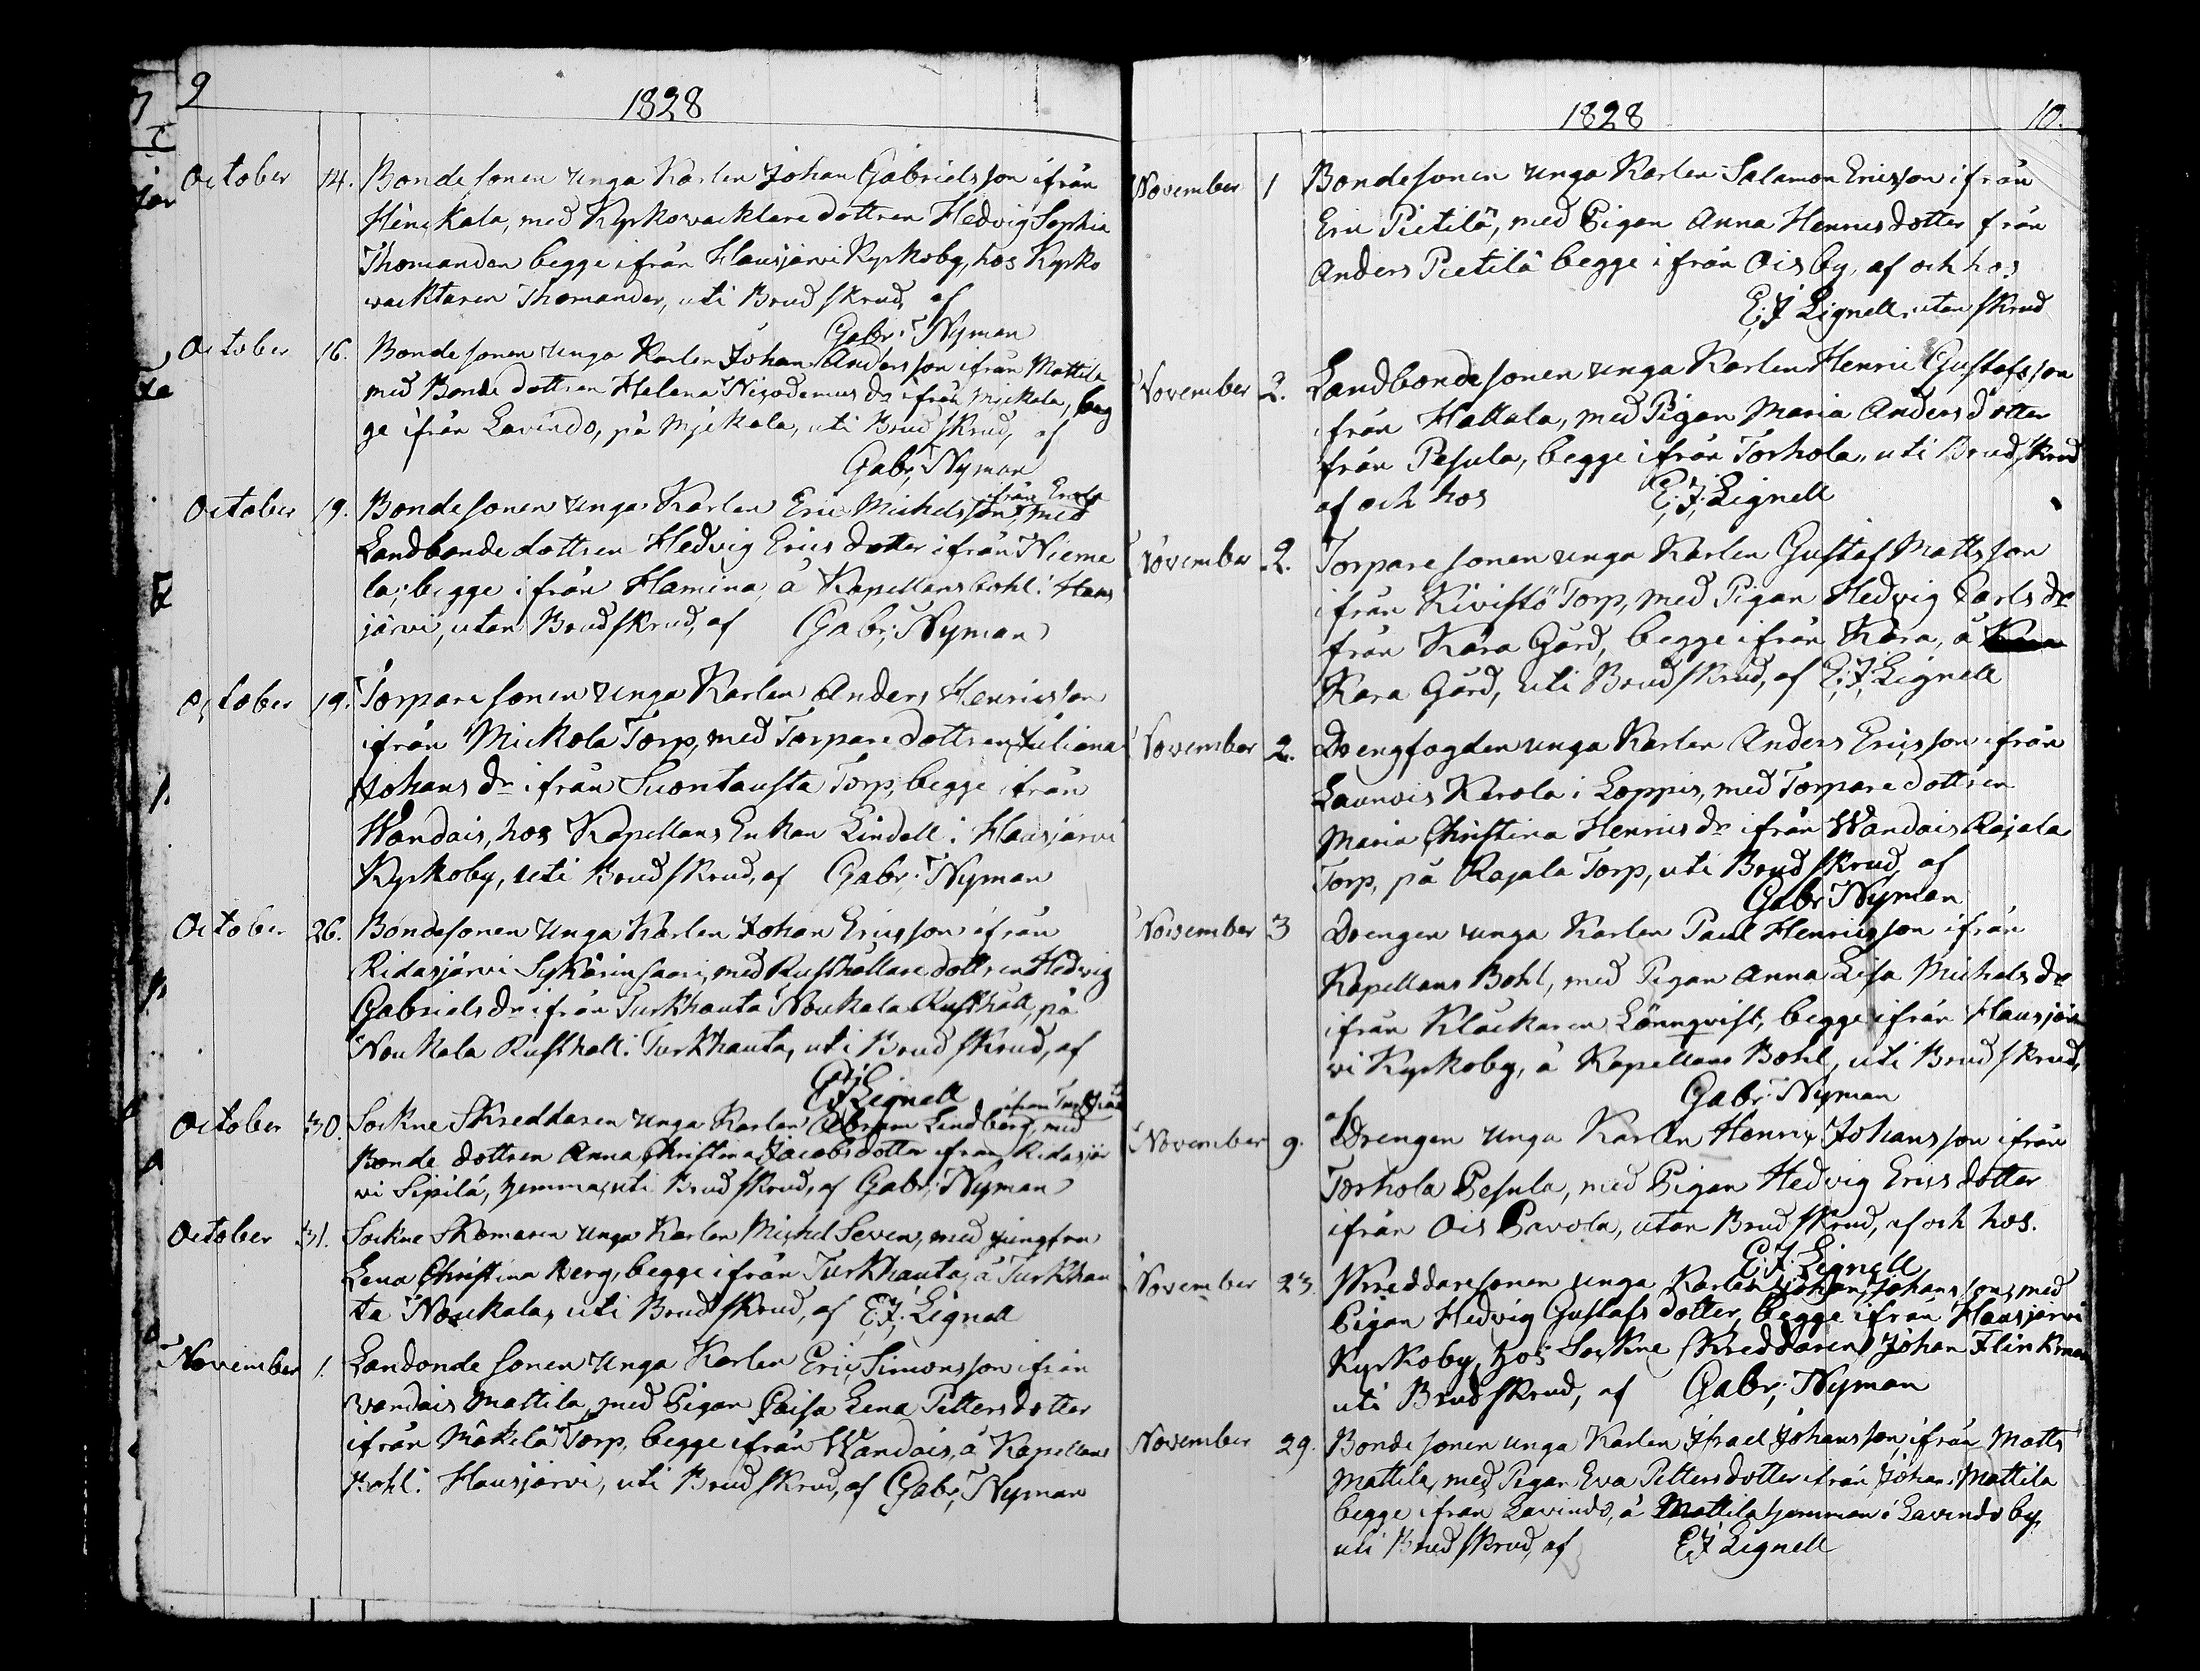 9
1828
October 14. Bondesonen unga Karlen Johan Gabrielsson ifrån
Hênskala, med Kyrkowacktare dottren Hedvig Sophia
Thomander begge ifrån Hausjärvi Kyrkoby, hos Kyrko
wacktaren Thomander, uti Brudskrud, af
Gabr. Nyman
October 16. Bondesonen unga Karlen Johan Andersson ifrån Mattila
med Bonde dottren Helena Nicodemus dr ifrån Mickala, beg
ge ifrån Lavindo, på Mickala, uti Brudskrud, af
Gabr. Nyman
ifrån Erola
October 19. Bondesonen unga Karlen Eric Michelsson, med
Landbonde dottren Hedvig Erics dotter ifrån Nieme
la, begge ifrån Hamina, å Kapellans bohl i Haus
järvi, utan Brudskrud, af Gabr. Nyman
October 19. Torparesonen unga Karlen Anders Henricsson
ifrån Mickola Torp, med Torpare dottren Juliana
Johans dr ifrån Suontausta Torp, begge ifrån
Wandais, hos Kapellans Enkan Lindell i Hausjärvi
Kyrkoby, uti Brudskrud, af Gabr. Nyman
October 26. Bondesonen unga Karlen Johan Ericsson ifrån
Ridasjärvi Sykärinsaari, med Rusthållare dottren Hedvig
Gabriels dr ifrån Turkhauta Noukala Rusthåll, på
Noukala Rusthåll i Turkhauta, uti Brudskrud, af
E.J. Lignell
October 30. Sockne Skreddaren unga Karlen Abram Lindberg, med
Bonde dottren Anna Christina Jacobsdotter ifrån Ridasjär
vi Sipilä, hemma, uti Brudskrud, af Gabr. Nyman
October 31. Sockne Skomaren unga Karlen Michel Seven, med jungfru
Lena Christina Berg, begge ifrån Turkhauta, å Turkhau
ta Noukala, uti Brudskrud, af E.J. Lignell
November 1. Landonde sonen unga Karlen Eric Simonsson ifrån
Wandais Mattila, med Pigan Caisa Lena Pettersdotter
ifrån Mäkelä Torp, begge ifrån Wandais, å Kapellans
Bohl i Hausjärvi, uti Brudskrud, af Gabr. Nyman
1828
10.
November 1 Bondesonen unga Karlen Salamon Ericsson ifrån
Eric Pietilä, med Pigan Anna Henricsdotter från
Anders Pietilä begge ifrån Ois by, af och hos
E.J. Lignell, utan skrud
November 2. Landbondesonen unga Karlen Henric Gustafsson
ifrån Hattula, med Pigan Maria Andersdotter
från Pesula, begge ifrån Torhola, uti Brudskrud
af och hos E.J. Lignell
November 2. Torparesonen unga Karlen Gustaf Mattsson
ifrån Kivistö Torp, med Pigan Hedvig Carls dr
från Kara Gård, begge ifrån Kara, å
Kara Gård, uti Brudskrud, af E.J. Lignell
November 2. Drengfogden unga Karlen Anders Ericsson ifrån
Launois Kerola i Loppis, med Torpare dottren
Maria Christina Henrics dr ifrån Wandais Rajala
Torp, på Rajala Torp, uti Brudskrud, af
Gabr Nyman
November 3 Drengen unga Karlen Paul Henricsson ifrån
Kapellans Bohl, med Pigan Anna Lisa Michels dr
ifrån Klåckaren Lönnqvist, begge ifrån Hausjär
vi Kyrkoby, å Kapellans Bohl, uti Brudskrud,
af Gabr. Nyman
November 9. Drengen unga Karlen Henric Johansson ifrån
Torhola Pesula, med Pigan Hedvig Ericsdotter
ifrån Ois Pavola, utan Brudskrud, af och hos.
E.J. Lignell
November 23. Skreddaresonen unga Karlen Johan Johansson, med
Pigan Hedvig Gustafs dotter, begge ifrån Hausjärvi
Kyrkoby, hos Sockne Skreddaren Johan Flinkman
uti Brudskrud, af Gabr. Nyman
November 29. Bondesonen unga Karlen Israel Johansson, ifrån Matts
Mattila, med Pigan Eva Pettersdotter ifrån Johan Mattila
begge ifrån Lavindo, å Mattila hemman i Lavindo by,
uti Brudskrud, af E.J. Lignell